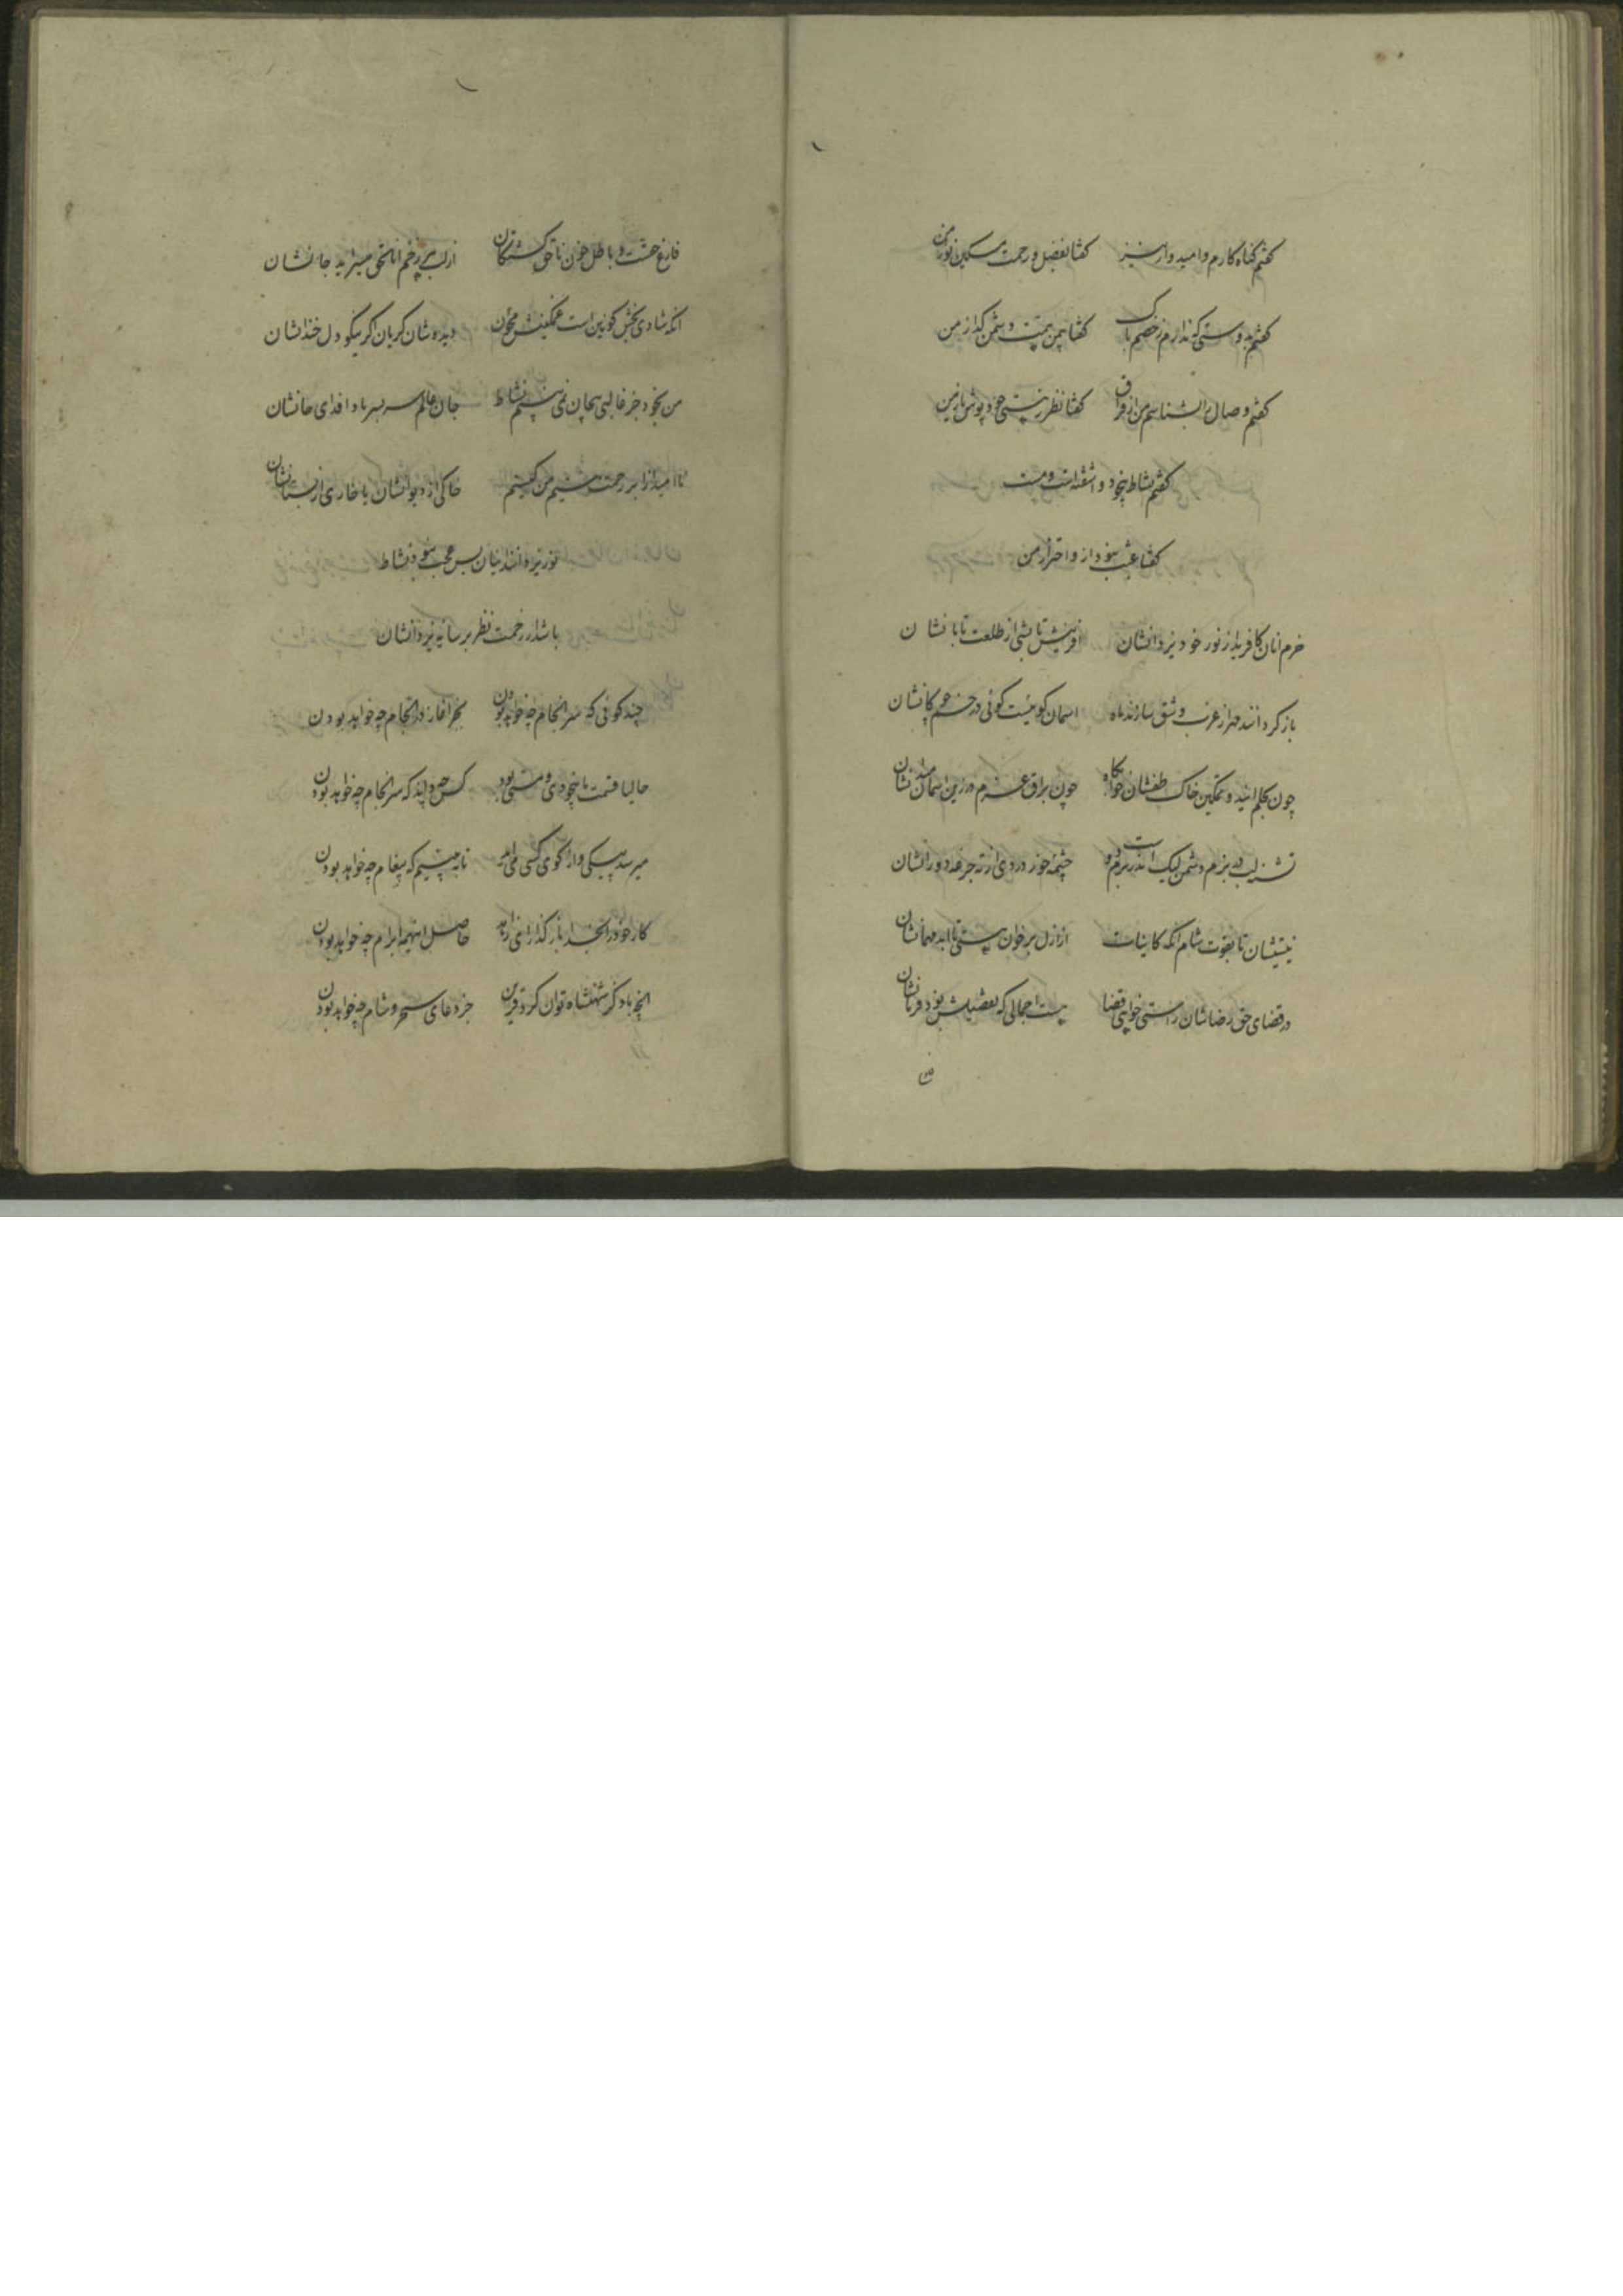 کفتم کناه کارم و امیدوار نیز کفتا بفضل و رحمت مسکین نواز من
کفتم بدوستی که ندارم ز خصم باک کفتا بمن همت دشمن کداز من
کفتم وصال را بشناسم من از فراق کفتا نظر ز هستی خود پوش باز من
کفتم نشاط بیخود و آشفته است و مست
کفتا عجب نبود از و احتراز من
خرم انان کافرید از نور خود یزدانشان افرینش تابشی از طلعت تابانشان
باز کردانند مهر از غرب و شق سازند ماه اسمان کوئیست کوئی در خم چوکانشان
چون بحلم ایند و تمکین خاک طفشان خوابکاه چون براق عزم در زین اسمان میدانشان
تشنه لب در بزم دشمن لیک اندر بزم دوست چشمه خور دردی از ته جرعه دورانشان
نیستیشان تا بقوت شام انکه کاینات از ازل بر خوان هستی تا ابد مهمانشان
در قضای حق رضاشان راستی خواهی قضا هست اجمالی که تفضیلش بود فرمانشان
فارغ حقست و باطل خون ناحق کشتکان از لب هر زخم اناالحق میسراید جانشان
انکه شادی بخش کونین است غمکینش مخوان دیده شان کریان اکر بینی کو دل خندانشان
من بخود جز قالبی بیجان نمی بینم نشاط جان عالم سر بسر بادا فدای جانشان
ناامید از ابر رحمت نیستیم من کیستم خاکی از دیوانشان یا خاری از بستانشان
نور یزدانند اینان بس عجب نبود نشاط
باشد ار رحمت نظر بر سایه یزدانشان
چند کوئی که سر انجام چه خواهد بودن بجز اغاز در انجام چه خواهد بودن
حالیا قسمت ما بیخودی و مستی بود کس چه داند که سر انجام چه خواهد بودن
میرسد پیکی و از کوی کسی می اید تا ببینیم که پیغام چه خواهد بودن
کار خود را بخدا باز کذار ای زاهد حاصل اینهمه ابرام چه خواهد بودن
انچه با ذکر شهنشاه توان کرد قرین جز دعای سحر و شام چه خواهد بودن